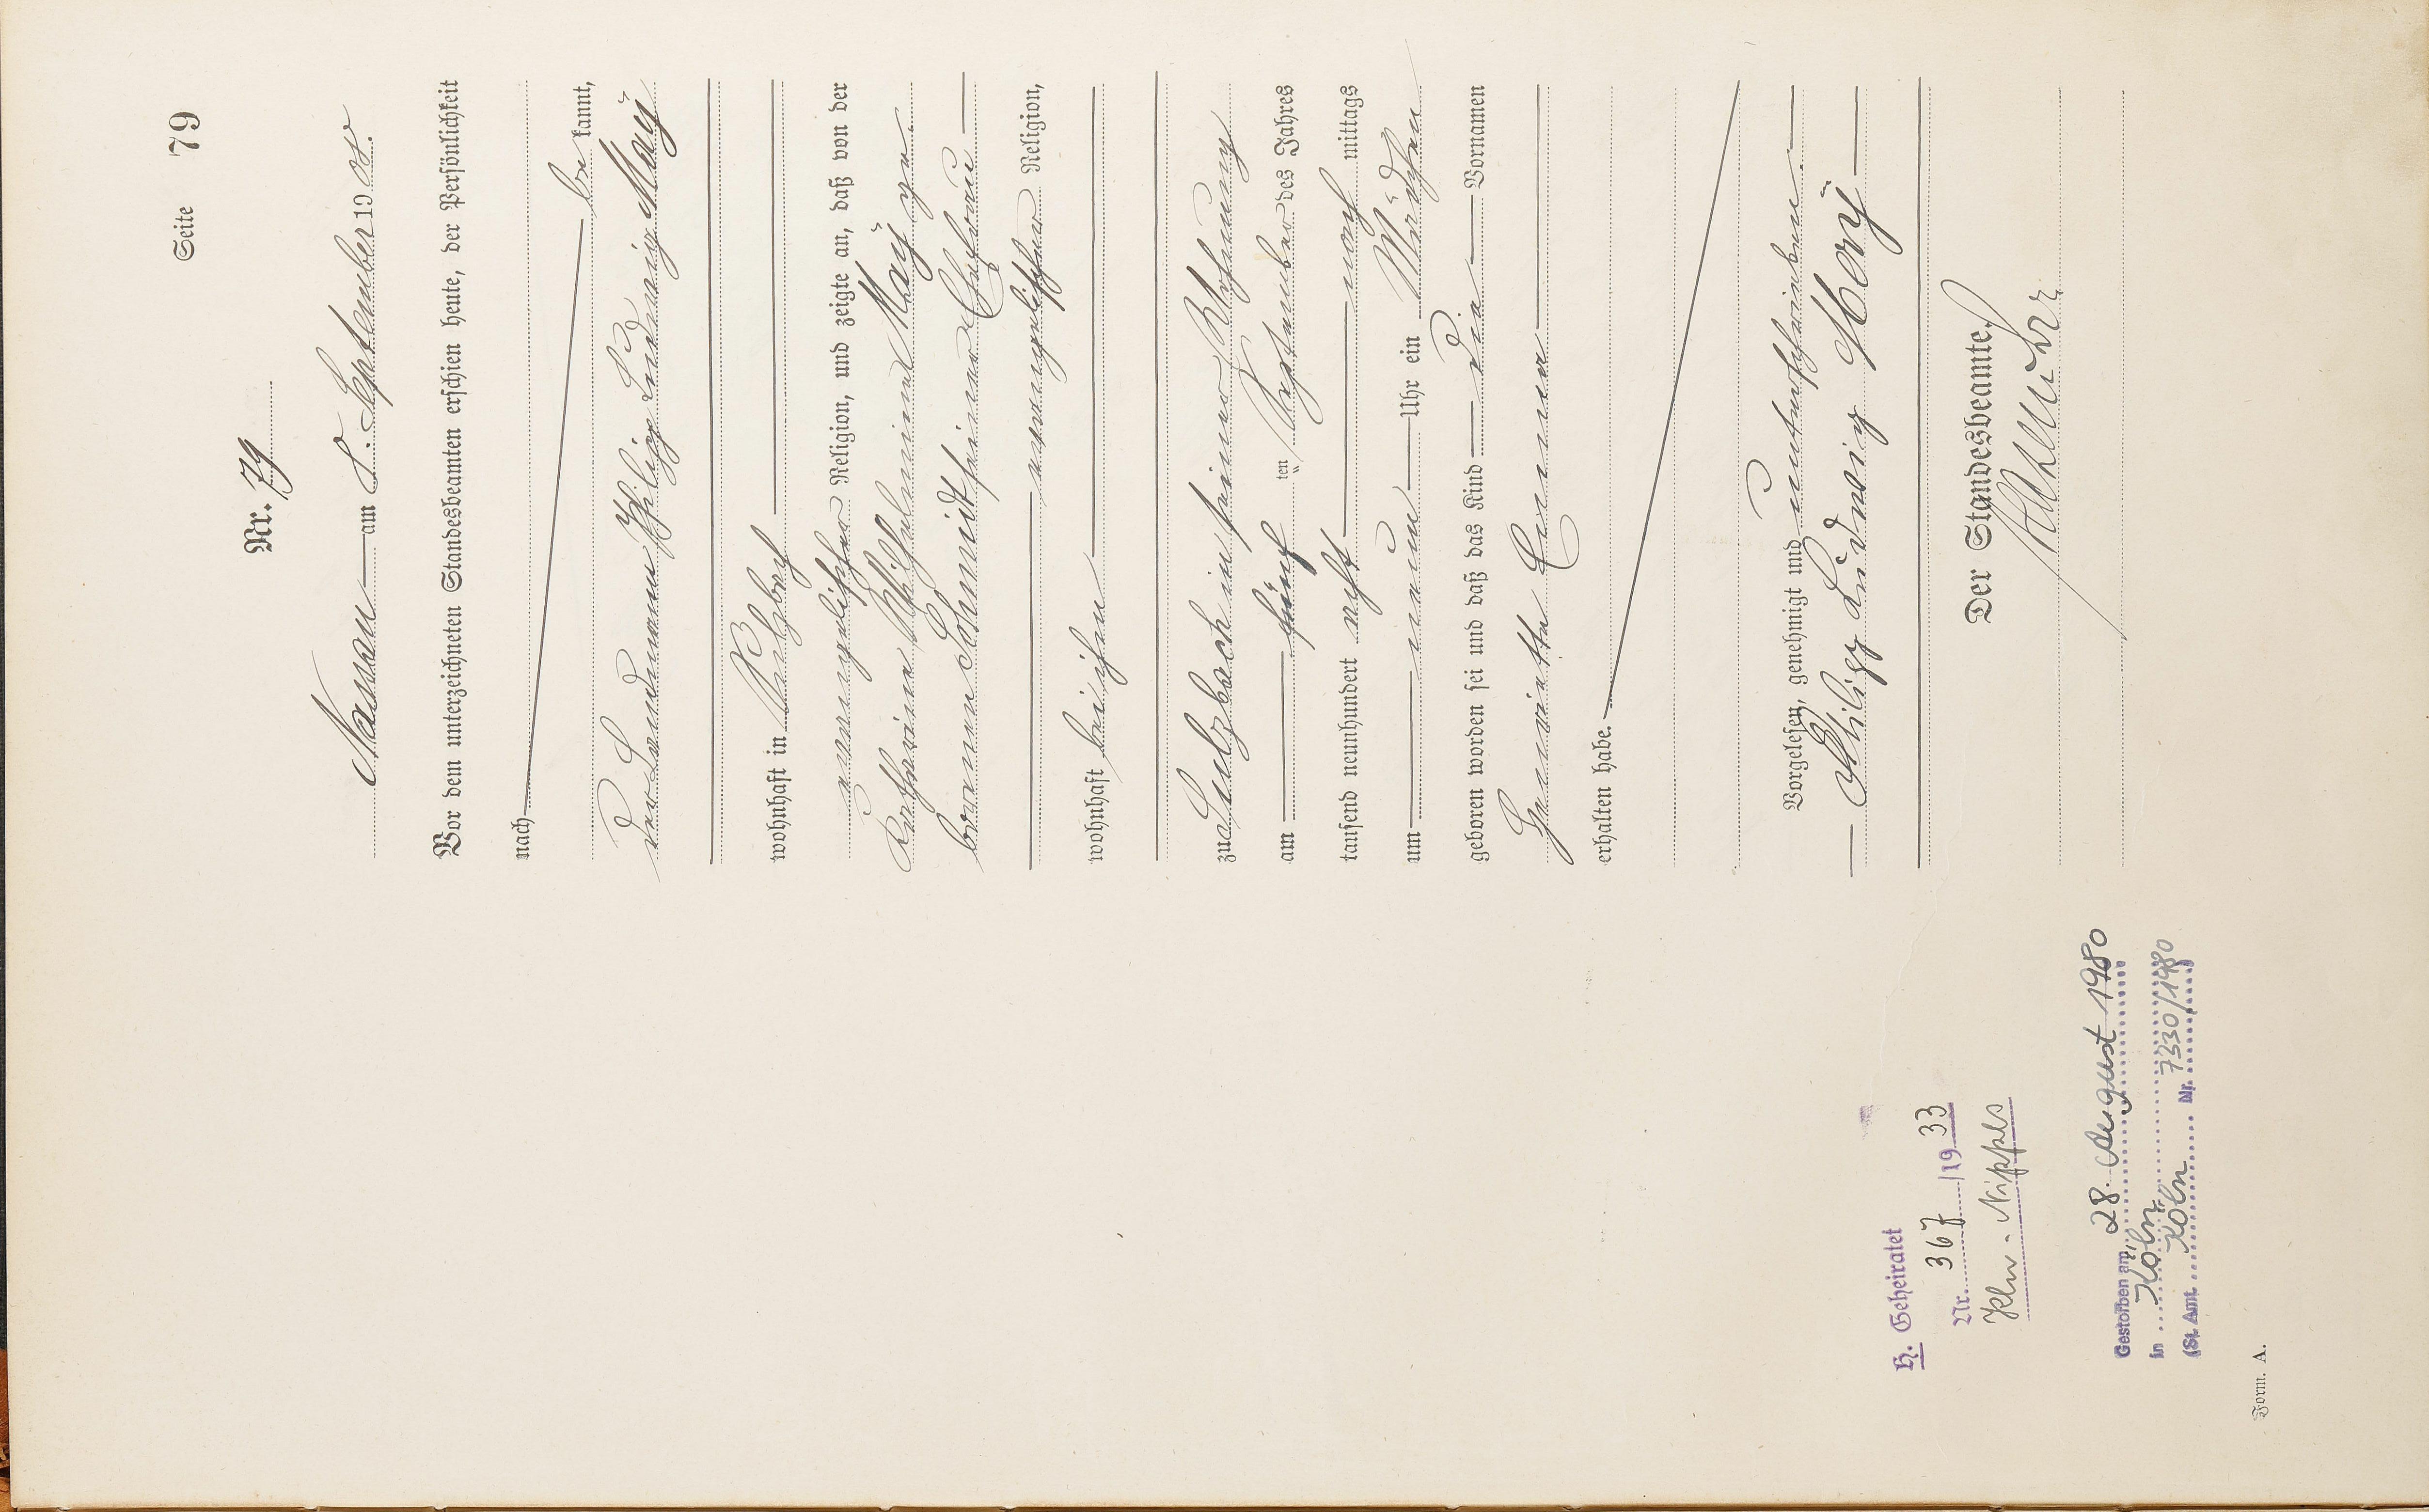 Seite 79
Nr. 79
Nassau am 8. September 1908.
Vor dem unterzeichneten Standesbeamten erschien heute, der Persönlichkeit
nach
be kannt,
der Landmann Philipp Ludwig Maÿ
wohnhaft in Sulzbach
evangelischer Religion, und zeigte an, daß von der
Katharine Wilhelmine Maÿ ge-
borenen Schmidt seiner Ehefrau
evangelischer Religion,
wohnhaft bei ihm
zu Sulzbach in seiner Wohnung
am fünf ten September des Jahres
tausend neunhundert acht nach mittags
um neun Uhr ein Mädchen
geboren worden sei und daß das Kind die Vornamen
Henriette Emma
erhalten habe.
Vorgelesen, genehmigt und unterschrieben.
Philipp Ludwig Maÿ
Der Standesbeamte.
H. Geheiratet
Nr. 367 /19 33
Köln-Nippes
Gestorben am 28. August 1980
in Köln
(St. Amt Köln Nr. 7330/1980
Form. A.